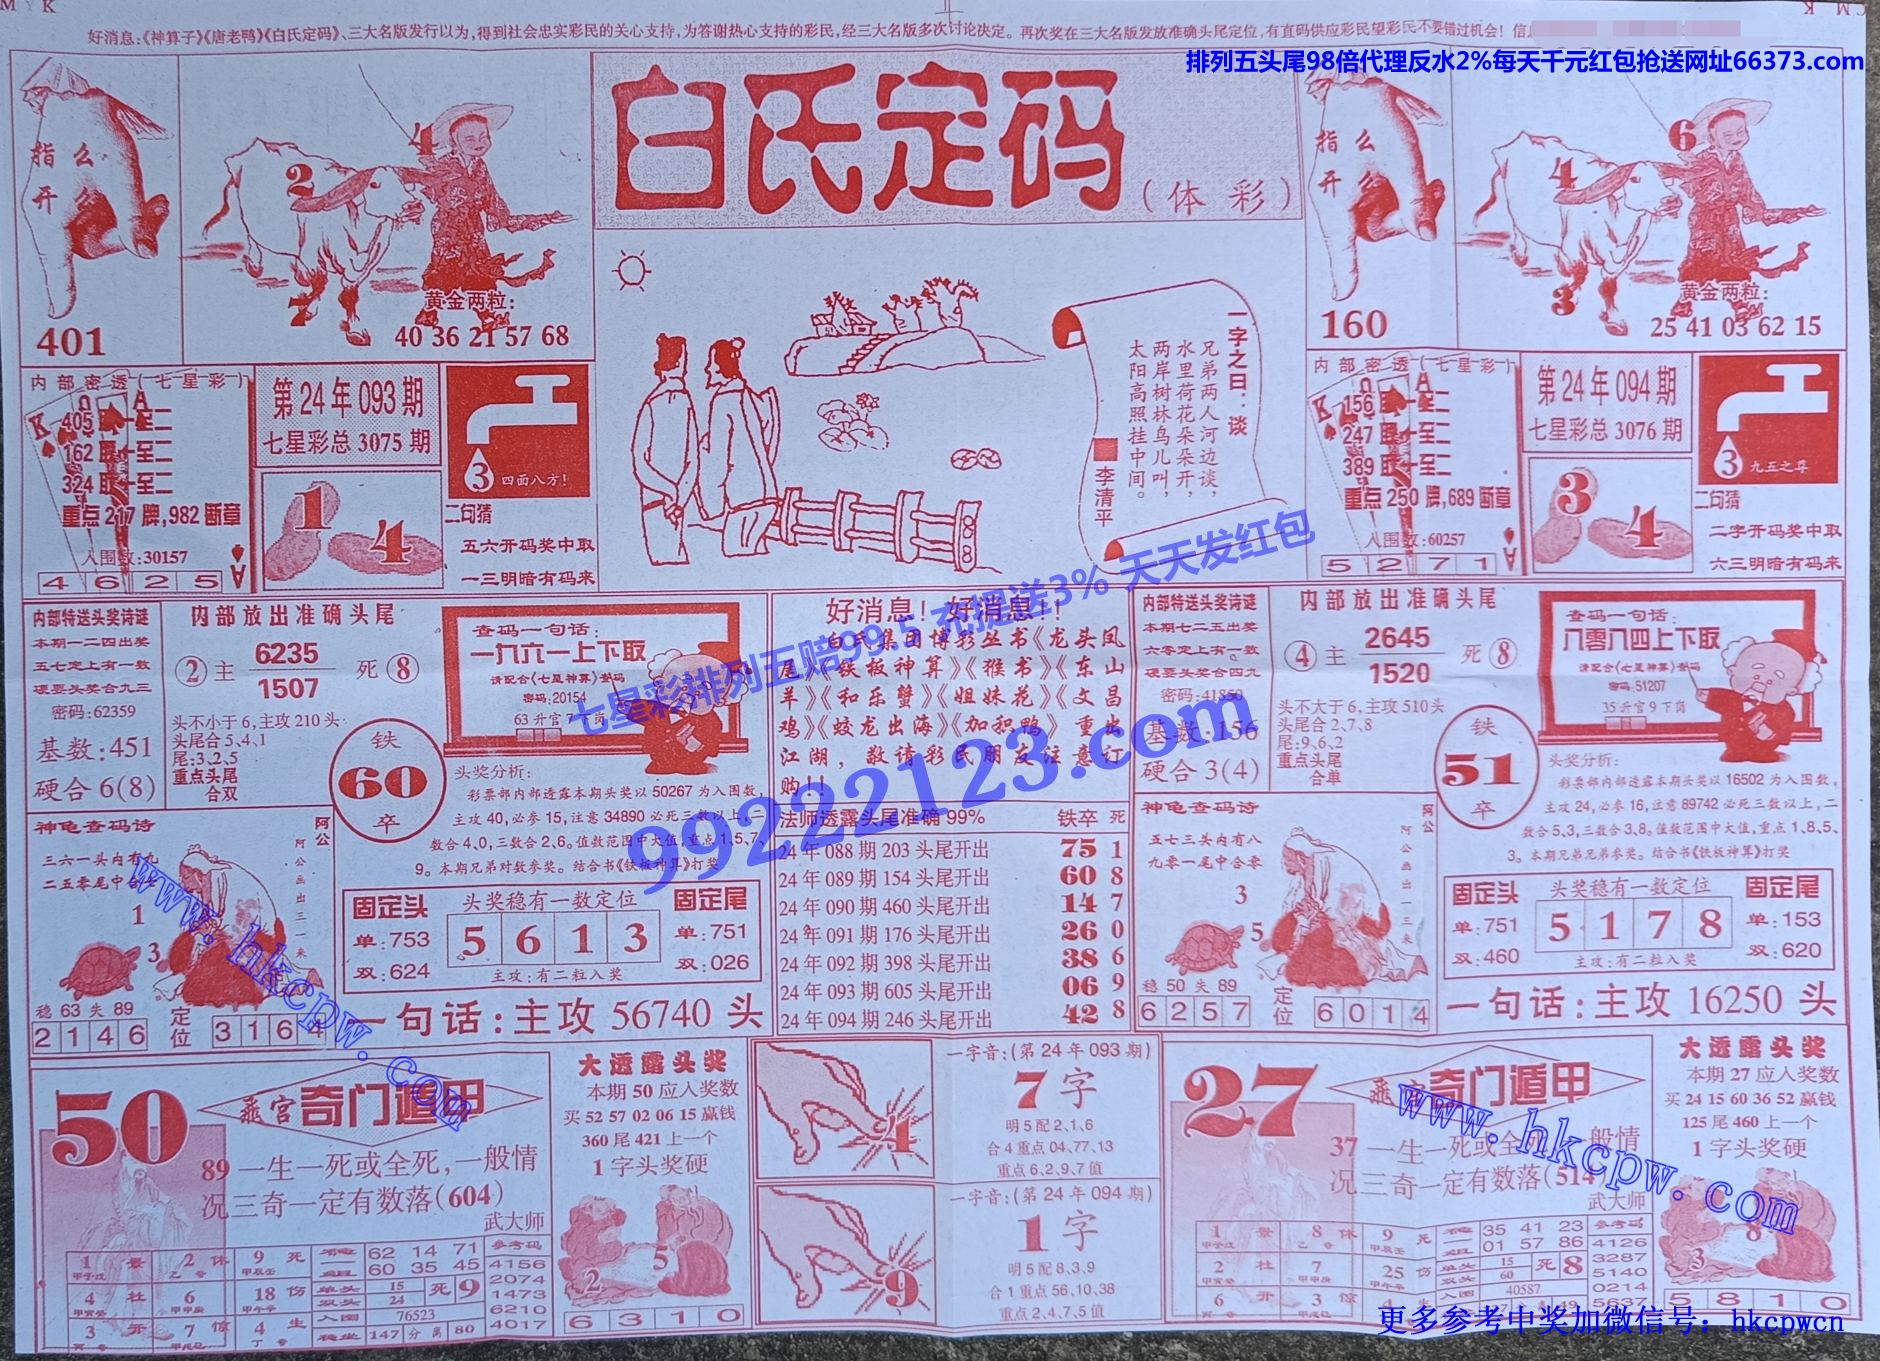 好消息:《神算子》《唐老鸭》《白氏定码》、三大名版发行以为,得到社会忠实彩民的关心支持,为答谢热心支持的彩民,经三大名版多次讨论决定。再次奖在三大名版发放准确头尾定位,有直码供应彩民望彩民不要错过机会!
排列五头尾98倍代理反水2%每天千元红包抢送网址66373.com
白氏定码
(体彩)
指么
开么
401
2
4
7
黄金两粒:
40 36 21 57 68
内部密透(七星彩)
405
162
324
重点217牌,982断章
入围数:30157
4 6 2 5
第24年093期
七星彩总3075期
1
4
3 四面八方!
二句猜
五六开码奖中取
一三明暗有码来
一字之曰:谈
兄弟两人河边谈,
水里荷花朵朵开,
两岸树林鸟儿叫,
太阳高照挂中间。
李清平
指么
开么
160
4
6
3
黄金两粒:
25 41 03 62 15
内部密透(七星彩)
156
247
389
重点250牌,689断章
入围数:60257
5 2 7 1
第24年094期
七星彩总3076期
3
4
3 九五之尊
二句猜
二字开码奖中取
六三明暗有码来
内部特送头奖诗谜
本期一二四出奖
五七定上有一数
硬要头奖合九三
密码:62359
基数:451
硬合6(8)
内部放出准确头尾
2 主 6235
1507 死 8
头不小于6,主攻210头
头尾合5,4,1
尾:3,2,5
重点头尾
合双
铁
60
卒
查码一句话:
一九六一上下取
请配合《七星神算》查码
密码:20154
63升官7下岗
头奖分析:
彩票部内部透露本期头奖以50267为入围数,
主攻40,必参15,注意34890必死三数以上,二
数合4,0,三数合2,6。值数范围中大值,重点1,5,7、
9。本期兄弟对数参奖。结合书《铁板神算》打奖
神龟查码诗
三六一头内有九
二五零尾中合
1
3
阿公
阿公画出三一来
稳63失89
2 1 4 6
定位
3 1 6 4
固定头
单:753
双:624
头奖稳有一数定位
5 6 1 3
主攻:有二粒入奖
固定尾
单:751
双:026
一句话:主攻56740头
好消息!好消息!!
白氏集团博彩丛书《龙头凤
尾》《铁板神算》《猴书》《东山
羊》《和乐蟹》《姐妹花》《文昌
鸡》《蛟龙出海》《加积鸭》重出
江湖,敬请彩民朋友注意订
购!!
法师透露头尾准确99% 铁卒 死
24年088期203头尾开出 75 1
24年089期154头尾开出 60 8
24年090期460头尾开出 14 7
24年091期176头尾开出 26 0
24年092期398头尾开出 38 6
24年093期605头尾开出 06 9
24年094期246头尾开出 42 8
内部特送头奖诗谜
本期七二五出奖
六零定上有一数
硬要头奖合四九
密码:41850
基数:156
硬合3(4)
内部放出准确头尾
4 主 2645
1520 死 8
头不大于6,主攻510头
头尾合2,7,8
尾:9,6,2
重点头尾
合单
铁
51
卒
查码一句话:
八零八四上下取
请配合《七星神算》查码
密码:51207
35升官9下岗
头奖分析:
彩票部内部透露本期头奖以16502为入围数,
主攻24,必参16,注意89742必死三数以上,二
数合5,3,三数合3,8。值数范围中大值,重点1,8,5、
3。本期兄弟兄弟参奖。结合书《铁板神算》打奖
神龟查码诗
五七三头内有八
九零一尾中合零
3
5
阿公
阿公画出一三来
稳50失89
6 2 5 7
定位
6 0 1 4
固定头
单:751
双:460
头奖稳有一数定位
5 1 7 8
主攻:有二粒入奖
固定尾
单:153
双:620
一句话:主攻16250头
50
飛宫奇门遁甲
89一生一死或全死,一般情
况三奇一定有数落(604)
武大师
1 景 2 休 9 死
4 杜 6 18 伤
3 开 7 惊 4 生
62 14 71
60 35 45
单头 15
双头 24
死 9
入围 76523
147分离80
参考码
4156
2074
1473
6210
4017
大透露头奖
本期50应入奖数
买52 57 02 06 15赢钱
360尾421上一个
1字头奖硬
2
5
6 3 1 0
4
一字音:(第24年093期)
7字
明5配2,1,6
合4重点04,77,13
重点6,2,9,7值
9
一字音:(第24年094期)
1字
明5配8,3,9
合1重点56,10,38
重点2,4,7,5值
27
飛宫奇门遁甲
37一生一死或全死,一般情
况三奇一定有数落(514)
武大师
1 景 8 休 9 死
2 杜 7 25 伤
6 开 3 惊 4 生
35 41 23
01 57 86
单头 15
双头 60
死 8
入围 40587
参考码
4126
3287
5140
0214
大透露头奖
本期27应入奖数
买24 15 60 36 52赢钱
125尾460上一个
1字头奖硬
3
8
5 8 1 0
七星彩排列五赔99.5 充把送3% 天天发红包
99222123.com
www.hkcpw.com
www.hkcpw.com
更多参考中奖加微信号: hkcpwcn